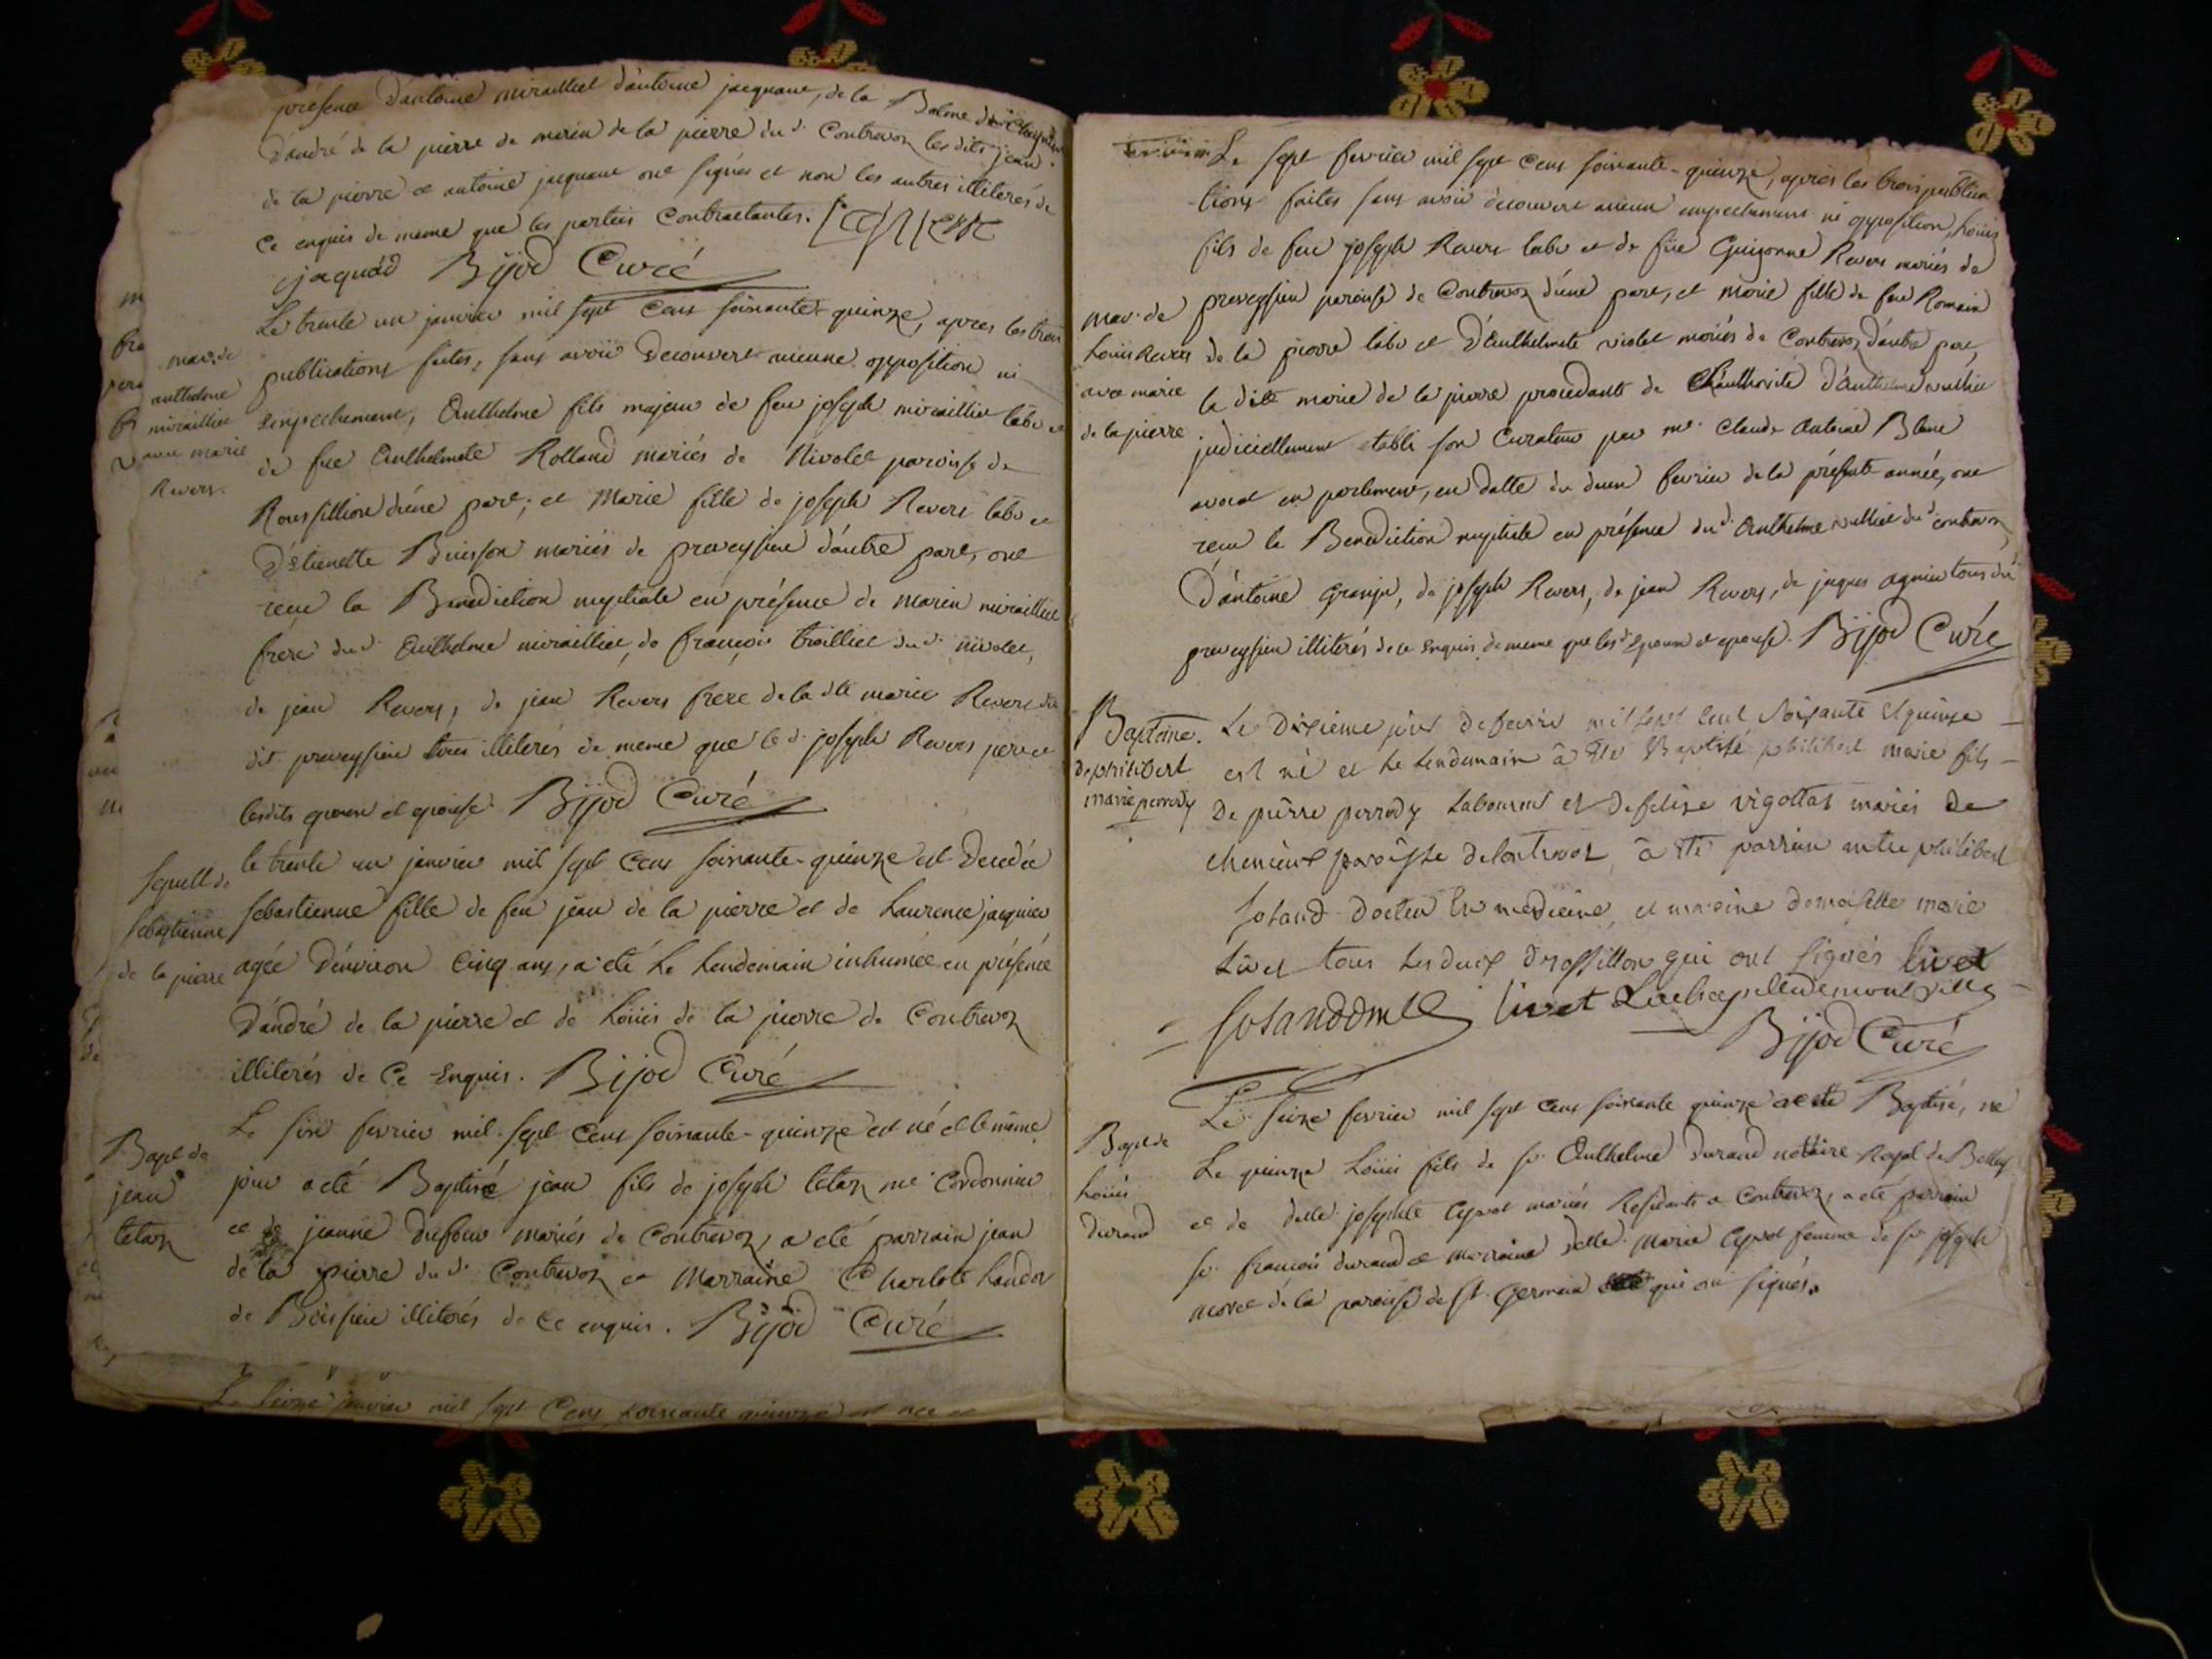 présence d'antoine miraillet d'antoine jacquant, de la Balme
d'andré de la pierre de marin de la pierre du d. Contrevoz lesdits jean
de la pierre et antoine jacquant ont signés et non les autres illiterés de
ce enquis de meme que les parties Contractantes.
jaquàd Bijod Curé
Le trente un janvier mil sept cens soixante-quinze, apres les trois
publications faites, sans avoir decouvert aucune opposition ni
empechement, Anthelme fils majeur de feu joseph miraillet labr et
de feue Anthelmete Rolland mariés de Nivolet paroisse de
Roussillion d'une part; et Marie fille de joseph Revers labr et
d'Etienette Buisson mariés de preveyssieu d'autre part, ont
reçu la Benediction nuptiale en présence de marin miraillet
frere du d. Anthelme miraillet, de françois trailliet du d. nivolet,
de jean Revers, de jean Revers frere de la dte marie Revers du
dit preveyssieu tous illiterés de meme que le d. joseph Revers pere et
lesdits epoux et epouse. Bijod Curé
mar. de
anthelme
miraillet
avec marie
Revers.
le trente un janvier mil sept cens soixante-quinze est decedée
sebastienne fille de feu jean de la pierre et de Laurence jacquier
agée d'environ cinq ans, a eté le lendemain inhumée en présence
d'andré de la pierre et de Loüis de la pierre de Contrevoz
illiterés de ce enquis. Bijod Curé
sepult de
sebastienne
de la pierre
Le six fevrier mil sept cens soixante-quinze est né et le même
jour a eté Baptisé jean fils de joseph tetaz me Cordonnier
et de jeanne dufour mariés de Contrevoz, a eté parrain jean
de la pierre du d. Contrevoz et Marraine Charlote Landoz
de Boissieu illiterés de ce enquis. Bijod Curé
Bapt de
jean
tetaz
mil sept Cens soixante quinze est née et
Le sept fevrier mil sept cens soixante-quinze, après les trois publica
tions faites sans avoir decouvert aucun empechement ni opposition, Loüis
fils de feu joseph Revers labr et de füe Guigonne Revers mariés de
preveyssieu paroisse de Contrevoz d'une part, et marie fille de feu Romain
de la pierre labr et d'Anthelmete violet mariés de Contrevoz d'autre part,
la dite marie de la pierre procedante de l'authorité d'Anthelme vulliet
judiciellement etabli son Curateur par me. Claude Antoine Blanc
avocat en parlement, en datte du deux fevrier de la présente année, ont
reçu la Benediction nuptiale en présence du d. Anthelme vulliet du d. contrevoz
d'antoine Granju, de joseph Revers, de jean Revers, de jaques agnieu tous du
preveyssieu illiterés de ce enquis de meme que les d. Epoux et epouse. Bijod Curé
mar. de
Loüis Revers
avec marie
de la pierre
Le Dixieme jour de fevrier mil sept cent soixante et quinze
est né et le lendemain à été Baptisé philibert marie fils
De pierre perrody Laboureur et de felise vigottat mariés de
chemieux paroisse de Contrevoz, à été parrain mtre philibert
Sotand Docteur en medecine, et maraine demoiselle marie
Livet tous les deux de rossillon qui ont signés livet
livet
Bijod Curé
Baptême.
de philibert
marie perrody
Le seize fevrier mil sept cens soixante quinze a eté Baptisé, né
Le quinze Loüis fils de sr. Anthelme Durand nottaire Royal de Belley
et de delle. josephte Cyvot mariés Residants a Contrevoz, a eté parrain
sr. francois durand et marraine delle. Marie Cyvot femme de sr. joseph
morel de la paroisse de St. Germain qui ont signés.
Bapt de
Loüis
Durand